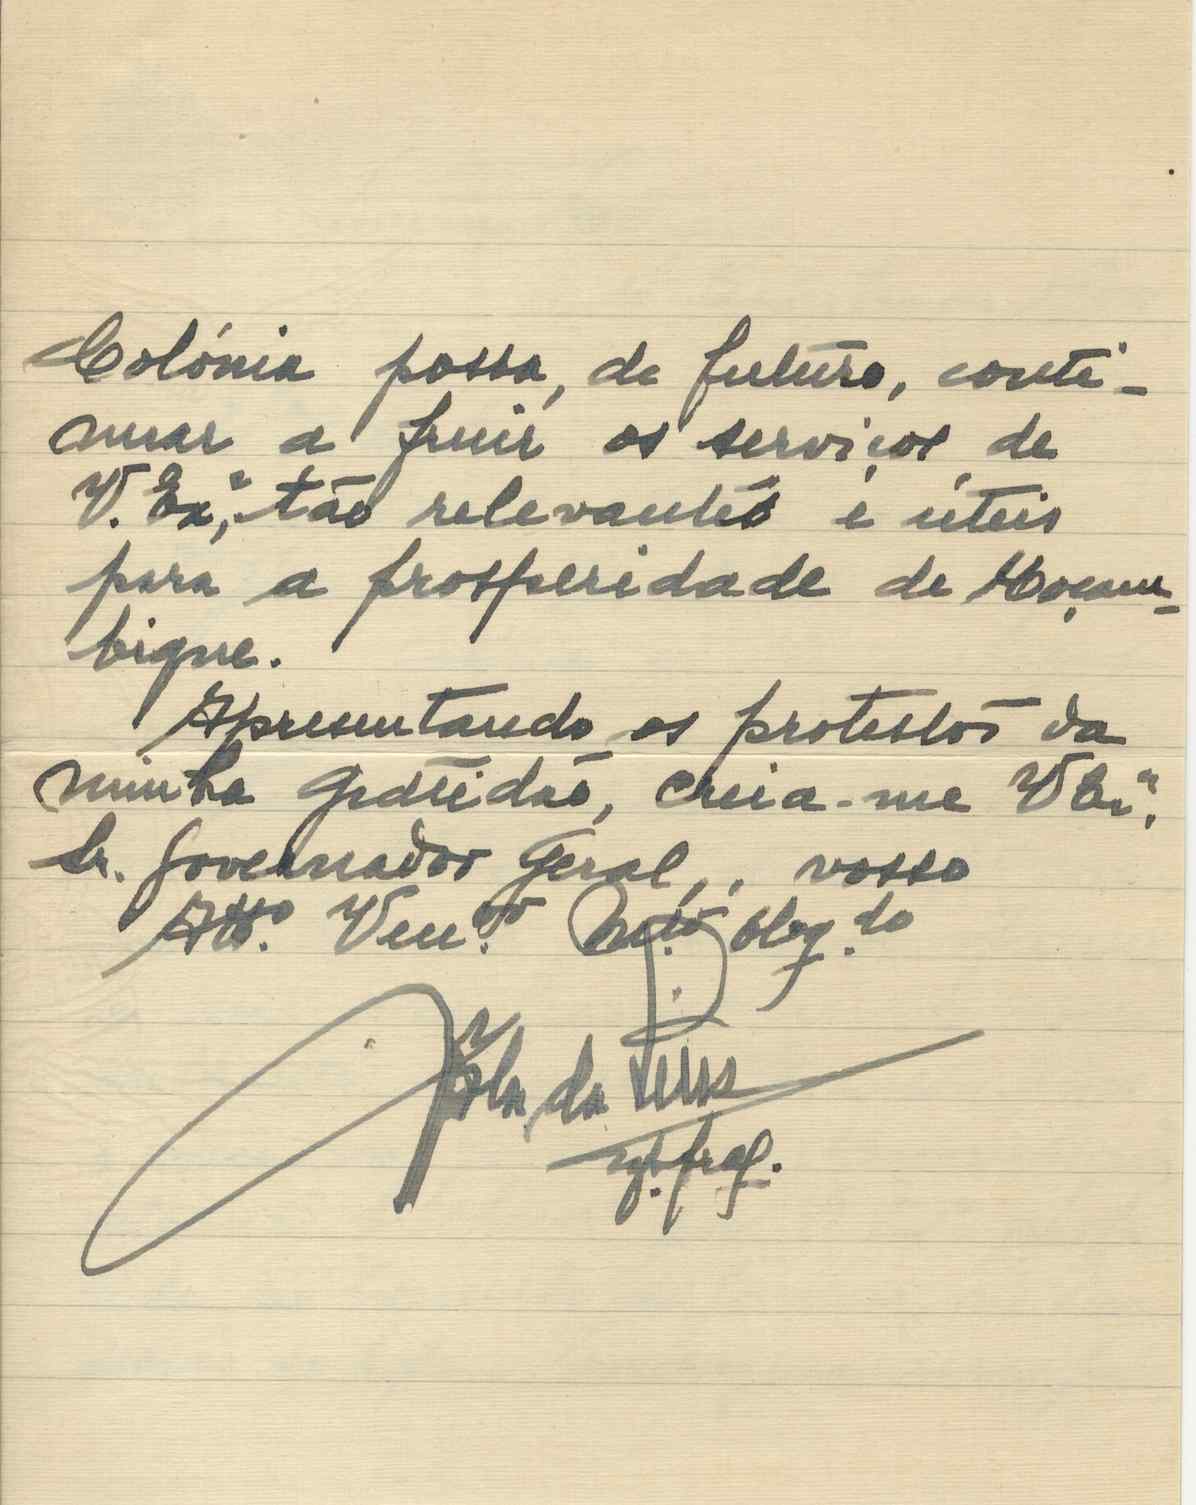 Colónia possa, de futuro, conti-
nuar a fruir os serviços de
V. Exª, tão relevantes e úteis
para a prosperidade de Moçam-
bique.
Apresentando os protestos da
minha gratidão, creia-me V Exª.
Sr. Governador Geral, vosso
Attº. Venºr. Mtº Obgdo
da